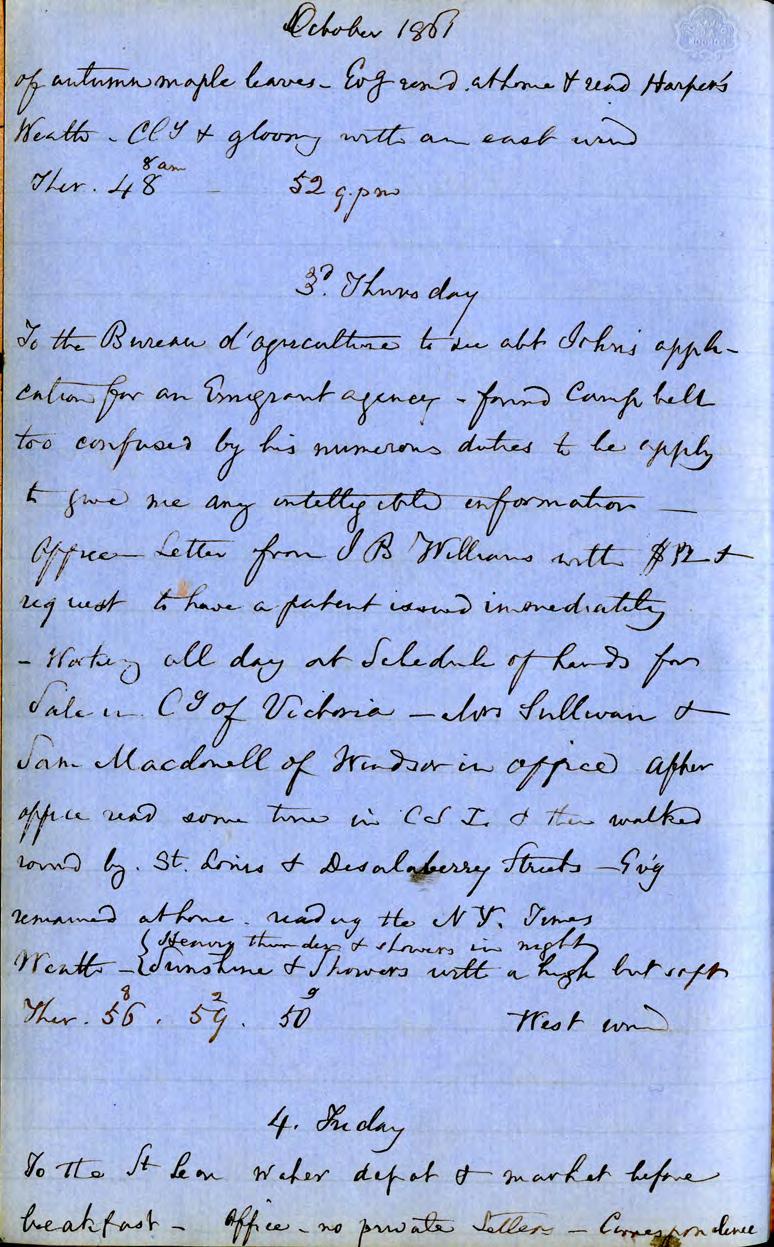 October 1861
of autumn maple leaves - Ev'g rem'd. at home & read Harper's
Weath - Cl'y & gloomy with an east wind
8 am
Ther. 48 - 52 9 pm
3d. Thursday
To the Bureau d'agriculture to see abt John's appli-
cation for an Emigrant agency - found Campbell
too confused by his numerous duties to be
to give me any intelligible information —
Office - Letter from J B Williams with $12 &
request to have a patent issued immediately
- Working all day at Schedule of lands for
Sale in C'y of Victoria - Mrs Sullivan &
Sam Macdonell of Windsor in office After
office read some time in & then walked
round by. St. Louis & Desalaberry Streets - Ev'g
remained at home. reading the N Y. Times
{ Heavy thunder & showers in night
Weath - { Sunshine & Showers with a high but soft
8 2 9
Ther. 56. 59. 50 West wind
4. Friday
To the St Leon Water depot & market before
breakfast - Office - no private Letters - Correspondence